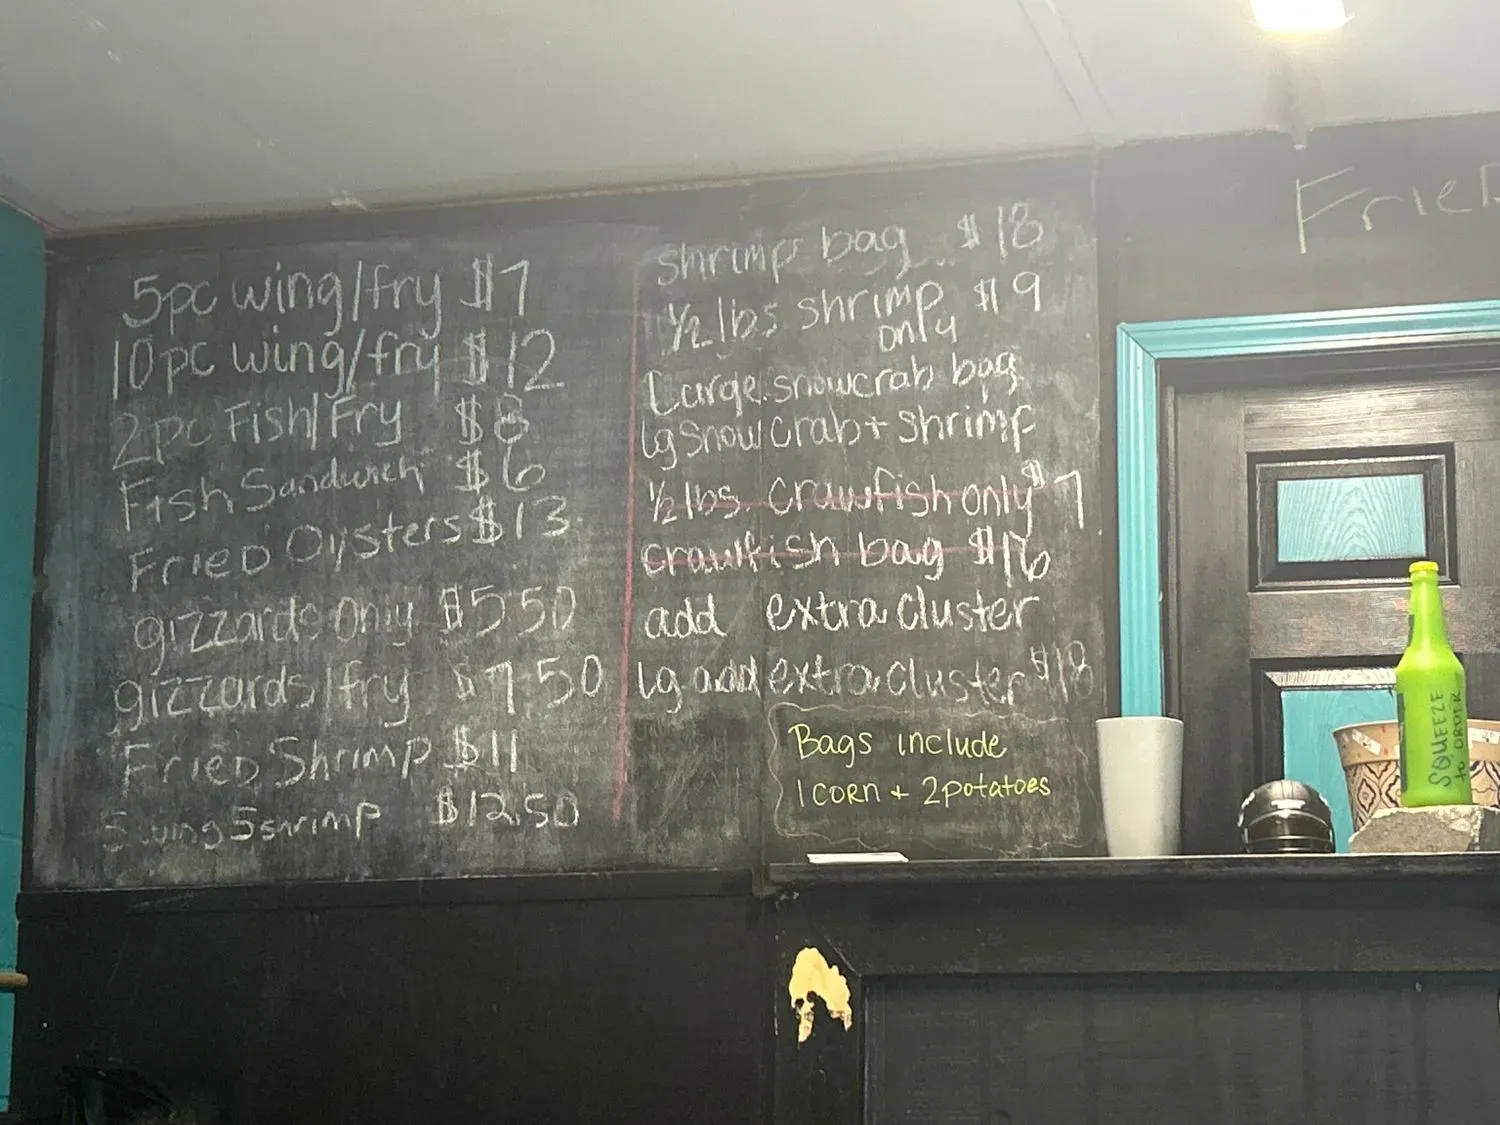 5pc wing/fry $7
10pc wing/fry $12
2pc Fish/Fry $8
Fish Sandwich $6
Fried Oysters $13
gizzards only $5.50
gizzards/fry $7.50
Fried Shrimp $11
5 wing 5 shrimp $12.50
shrimp bag $18
½ lbs shrimp $9
only
Large snowcrab bag
lg snow crab + shrimp
½ lbs. crawfish only $7
crawfish bag $16
add extra cluster
lg add extra cluster $18
Bags include
1 corn + 2 potatoes
Fried
SQUEEZE
to ORDER